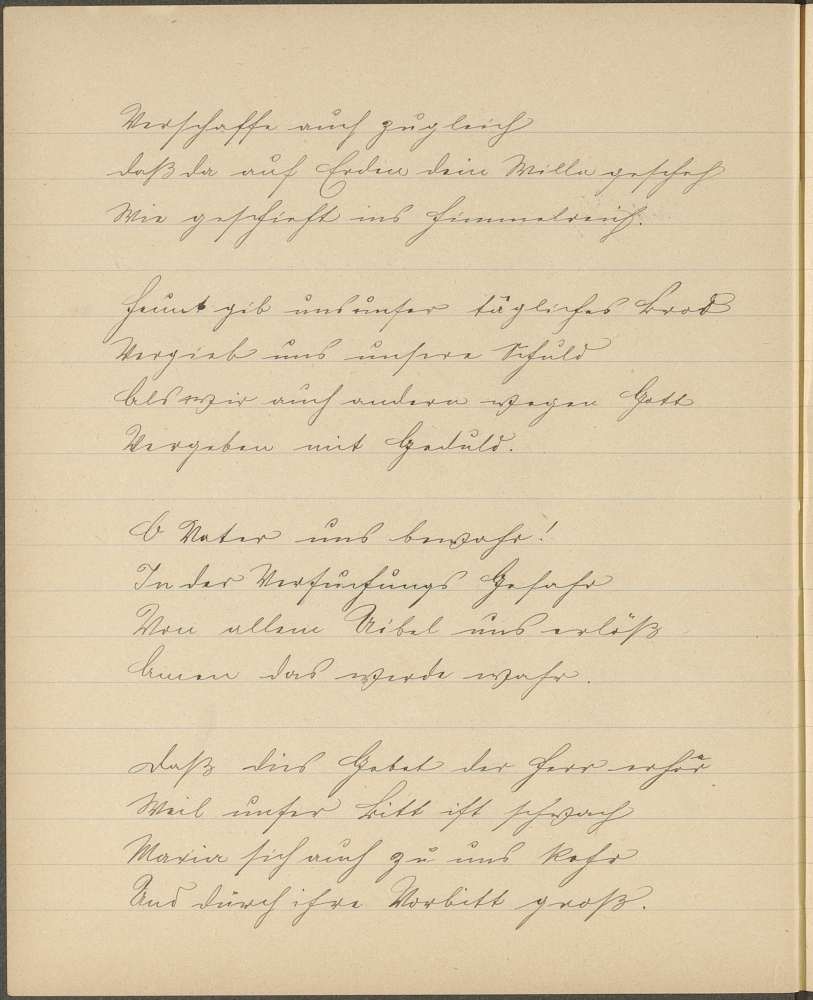 Verschaffe auch zugleich
daß da auf Erden dein Wille gescheh
Wie geschieht ins Himmelreich.
Heunt gib uns unser tägliches Brod
Vergieb uns unsere Schuld
Als wir auch andern wegen Gott
Vergeben mit Geduld.
O Vater uns bewahr!
In der Versuchungs Gefahr
Von allem Uibel uns erlöß
Amen das werde wahr.
Daß dies Gebet der Herr erhör
Weil unser Bitt ist schwach
Maria sich auch zu uns kehr
Und durch ihre Vorbitt groß.